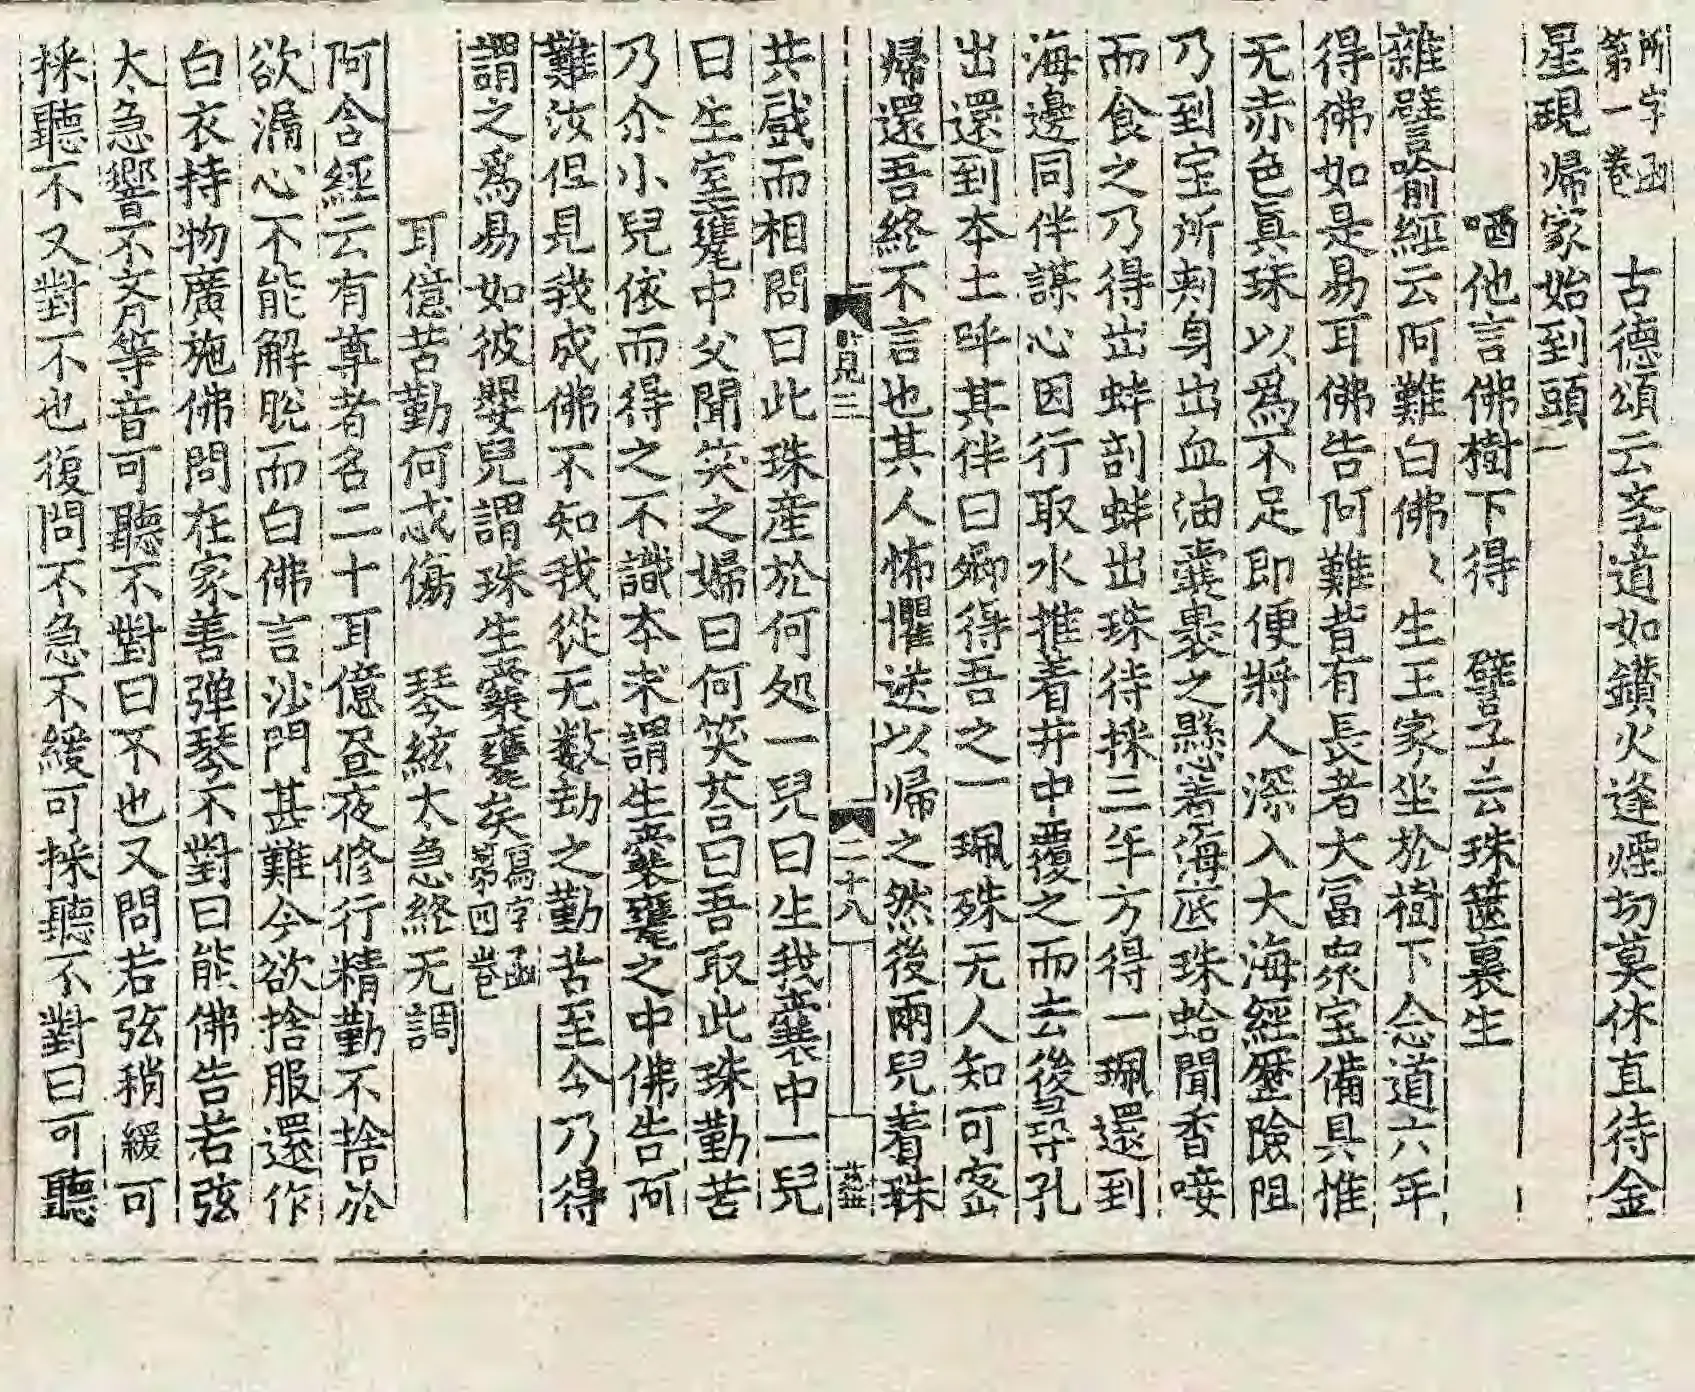 所字函第一卷　古德頌云学道如鑽火逢煙切莫休直待金
星現歸家始到頭
哂他言佛樹下得　譬子云珠篋裏生
雜譬喻經云阿難白佛〻生王家坐於樹下念道六年
得佛如是易耳佛告阿難昔有長者大冨衆宝備具惟
无赤色眞珠以爲不足即便將人深入大海經歷險阻
乃到宝所刾身出血油囊裹之懸着海底珠蛤聞香唼
而食之乃得出蚌剖蚌出珠待採三年方得一珮還到
海邊同伴謀心因行取水推着井中覆之而去後
孔
出還到本土呼其伴曰卿得吾之一珮殊无人知可密
帰還吾終不言也其人怖懼送以帰之然後兩兒着珠
賢三　二十八
共戱而相問曰此珠産於何処一兒曰生我囊中一兒
曰生室甕中父聞笑之婦曰何笑荅曰吾取此珠勤苦
乃尒小兒依而得之不識本末謂生囊甕之中佛告阿
難汝但見我成佛不知我從无数劫之勤苦至今乃得
謂之爲易如彼嬰兒謂珠生囊甕矣寫字函第四卷
耳億苦勤何忒傷　琴絃太急終无調
阿含經云有尊者名二十耳億昼夜修行精勤不捨於
欲漏心不能解脫而白佛言沙門甚難今欲捨服還作
白衣持物廣施佛問在家善弹琴不對曰能佛告若弦
太急響不齐等音可聽不對曰不也又問若弦稍緩可
採聽不又對不也復問不急不緩可採聽不對曰可聽